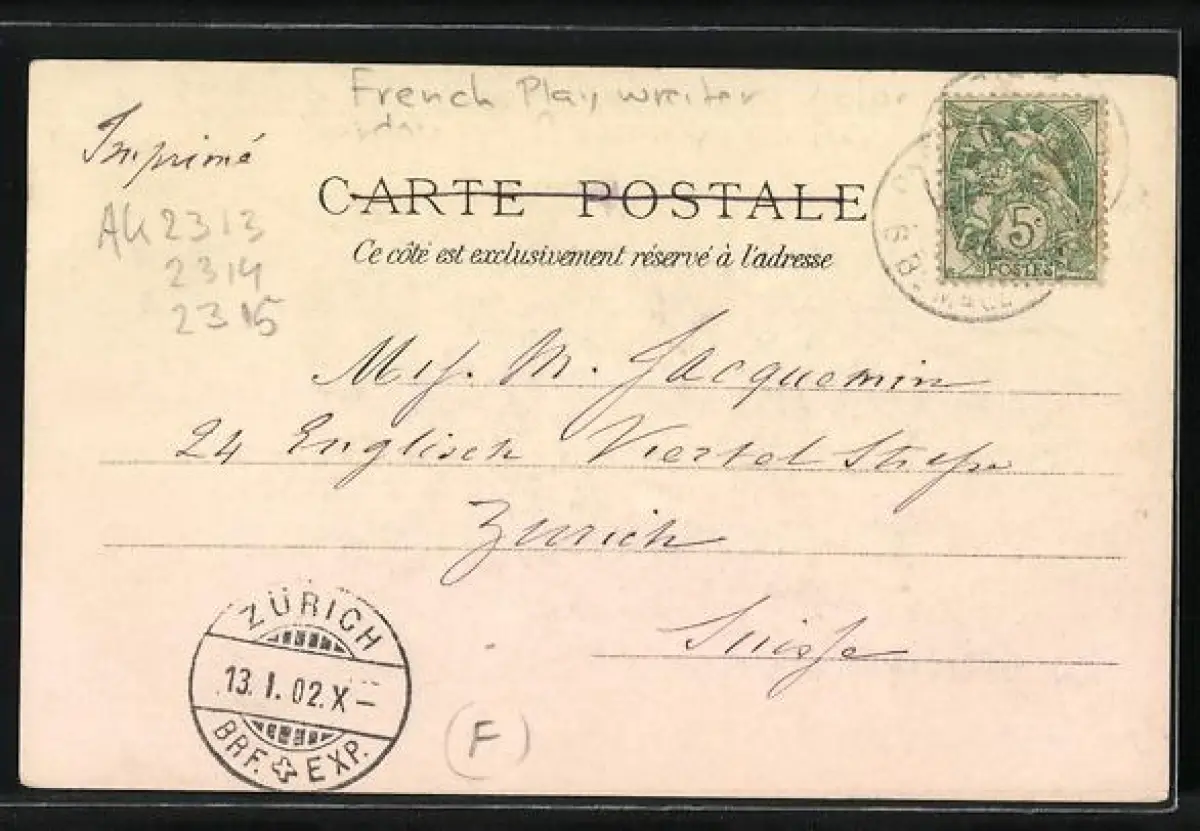 French Play wreiter
Imprimé
CARTE POSTALE
Ce côté est exclusivement réservé à l'adresse
AK 2313
2314
2315
5c
POSTES
Miss. M. Jacquemin
24 Englisch Viertel Strasse
Zurich
Suisse
ZÜRICH
13. I. 02. X–
BRF. EXP.
(F)